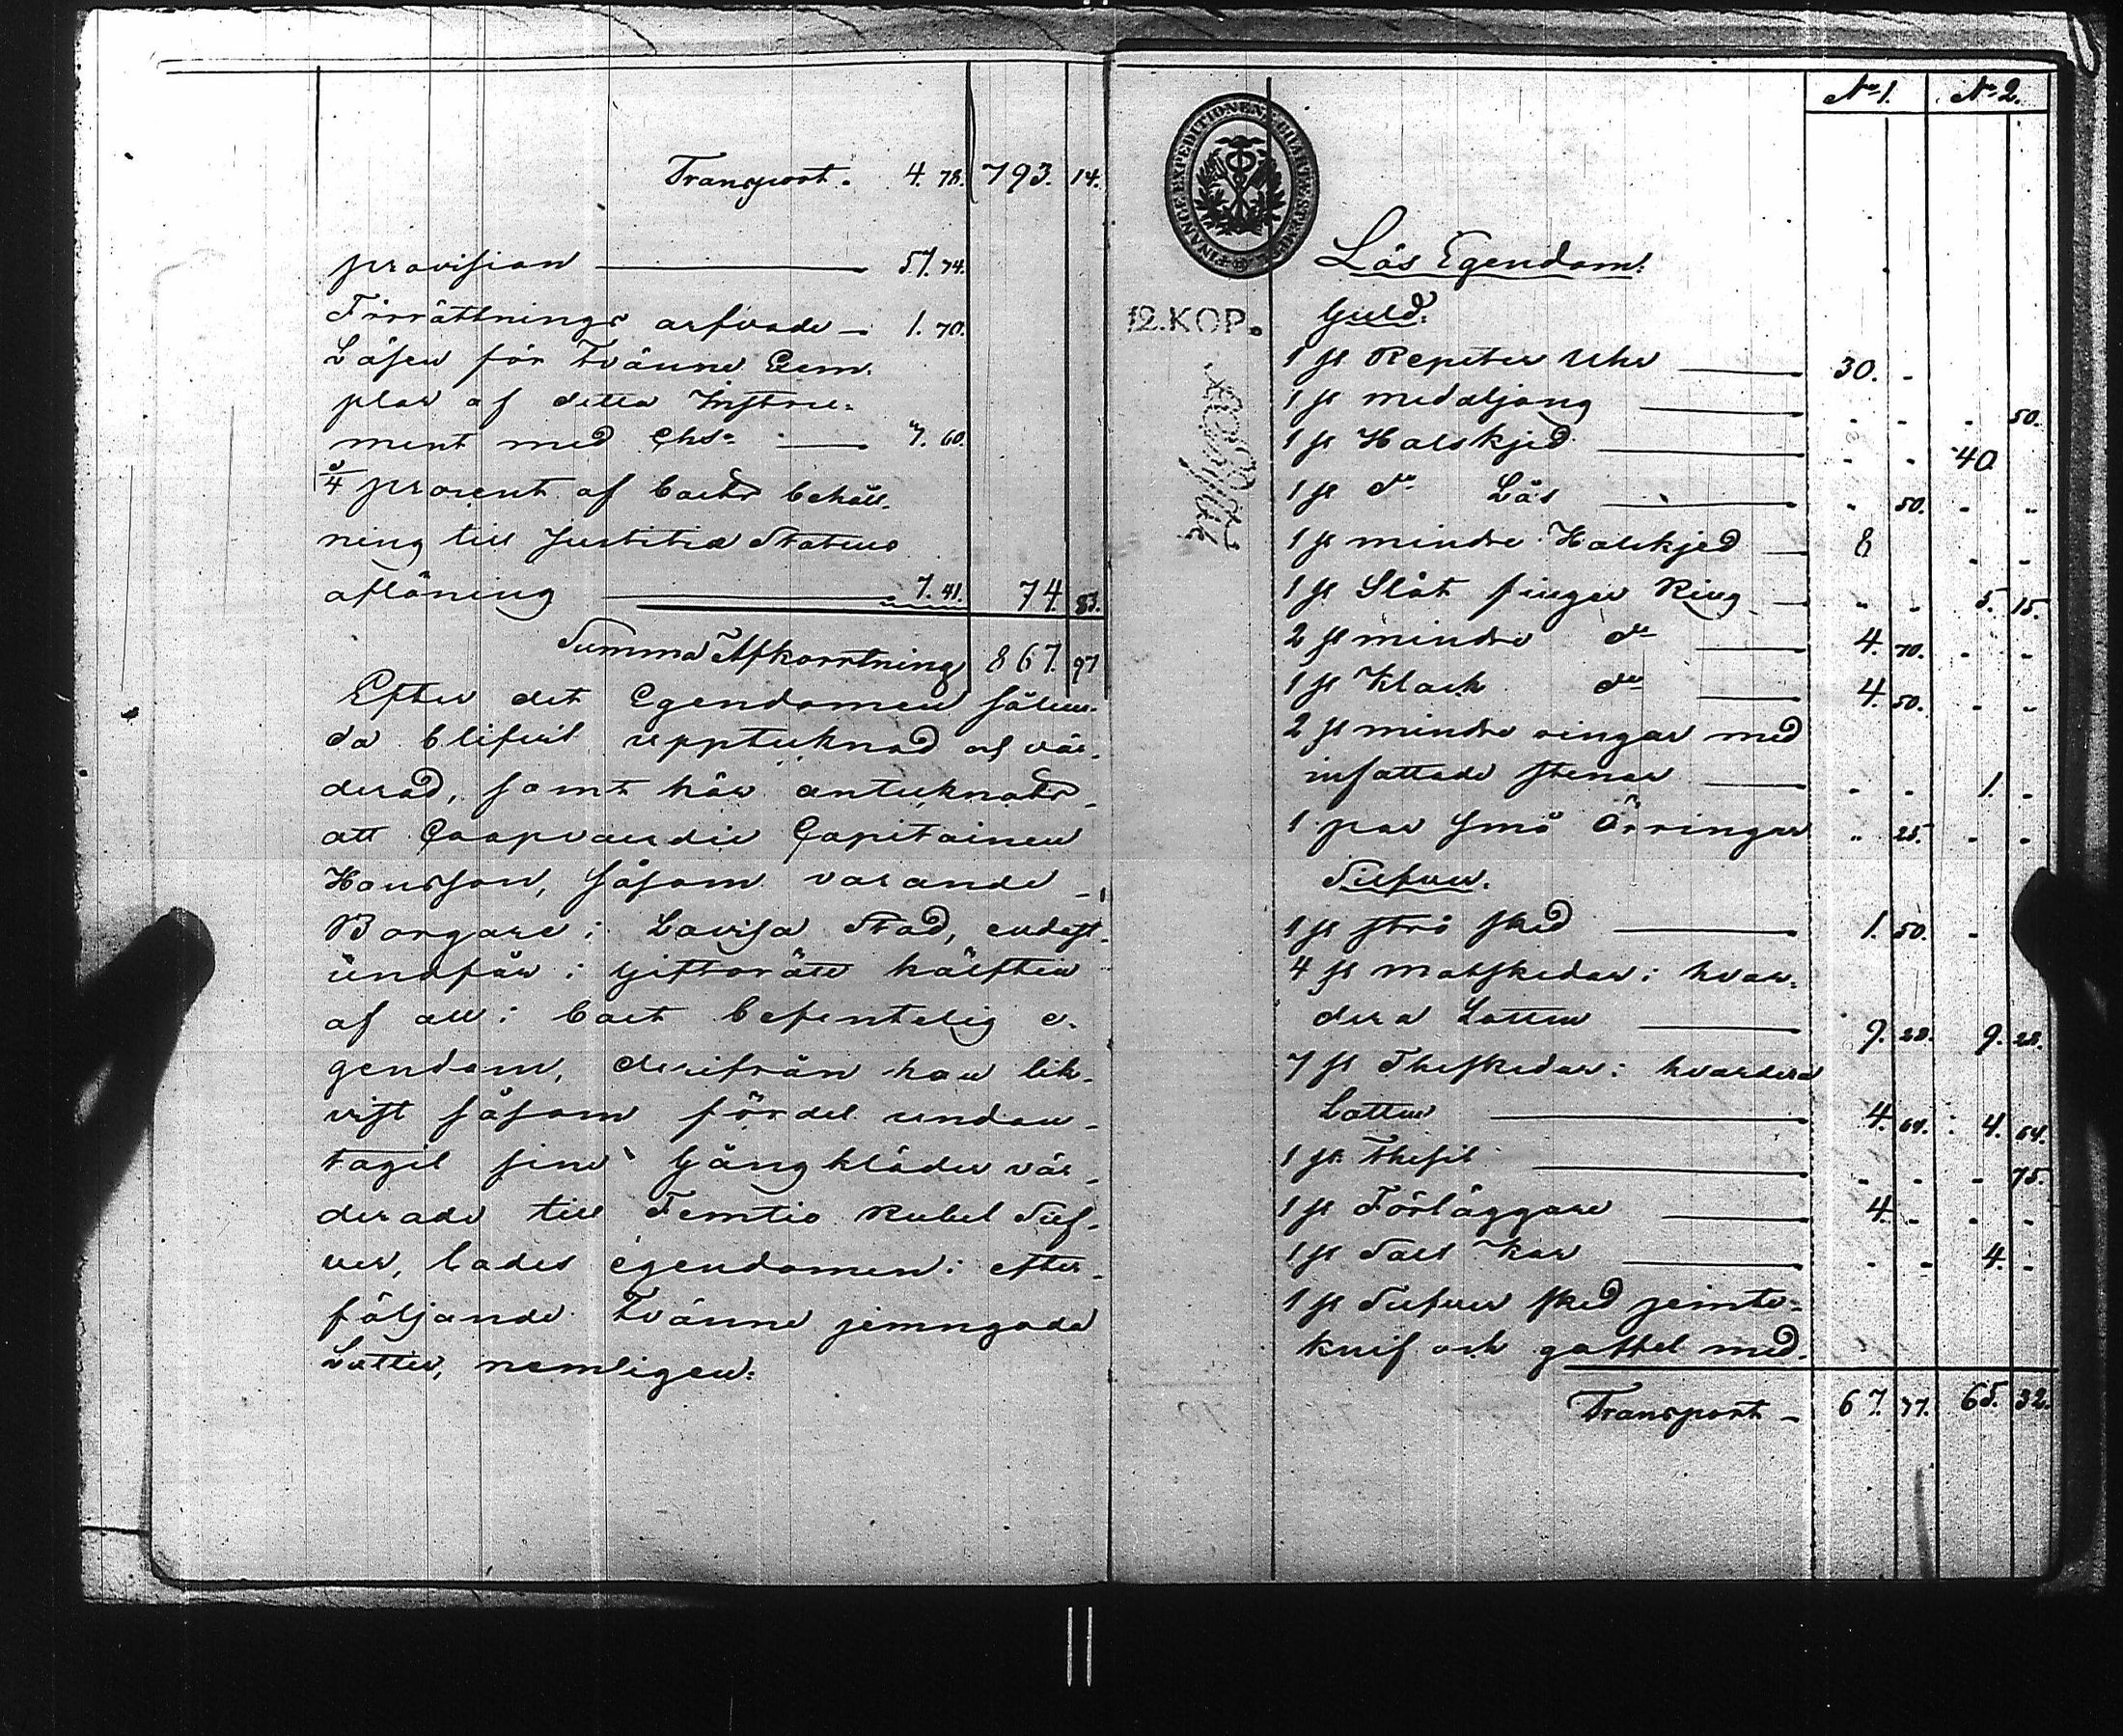 Transport. 4. 78. 793. 14.
provision — 51. 74.
Förrättnings arfvode — 1. 70.
Lösen för tvänne Exem-
plar af detta Instru-
ment med Chs. — 7. 60.
procent af boets behåll-
ning till Justitiæ Statens
aflöning — 7. 41. 74. 83.
Summa Afkorrtning 867. 97
Efter det Egendomen sålun-
da blifvit uppteknad och vär-
derad, samt här anteknats,
att Coopvaerdie Capitainen
Hansson, såsom varande
Borgare i Lovisa Stad, endast
undfår i Giftorätt hälften
af all i boet befintelig e-
gendom, derifrån han lik-
visst såsom fördel undan-
tagit sine Gångkläder vär-
derade till Femtio Rubel Silf-
ver, lades egendomen i efter-
följande tvänne jemngoda
Lotter, nemligen:
FINANCE EXPEDITIONENS CHARTÆ STEMPEL
12. KOP.
No 1. No 2.
Lös Egendom:
Guld.
1 st Repeter Uhr — 30. - 
1 st medaljong — - - - 50.
1 st Halskjed — - - 40
1 st do Lås — - 50. - -
1 st mindre Halskjed — 8 - -
1 st Slät finger Ring — - - 5. 15.
2 st mindre do — 4. 70. - -
1 st Klack do — 4. 50. - -
2 st mindre ringar med
infattade stenar — - - 1. -
1 par små Örringar - 25. - -
Silfver.
1 st strö sked — 1. 50. -
4 st matskedar i hvar-
dera Lotten — 9. 28. 9. 28.
7 st Theskedar i hvardera
Lotten — 4. 64. 4. 64.
1 st Thesil — - - - 75.
1 st Förläggare — 4. - - -
1 st Salt Kar — - - 4. -
1 st Silfver sked jemte
knif och gaffel med
Transport — 67. 77. 65. 32.